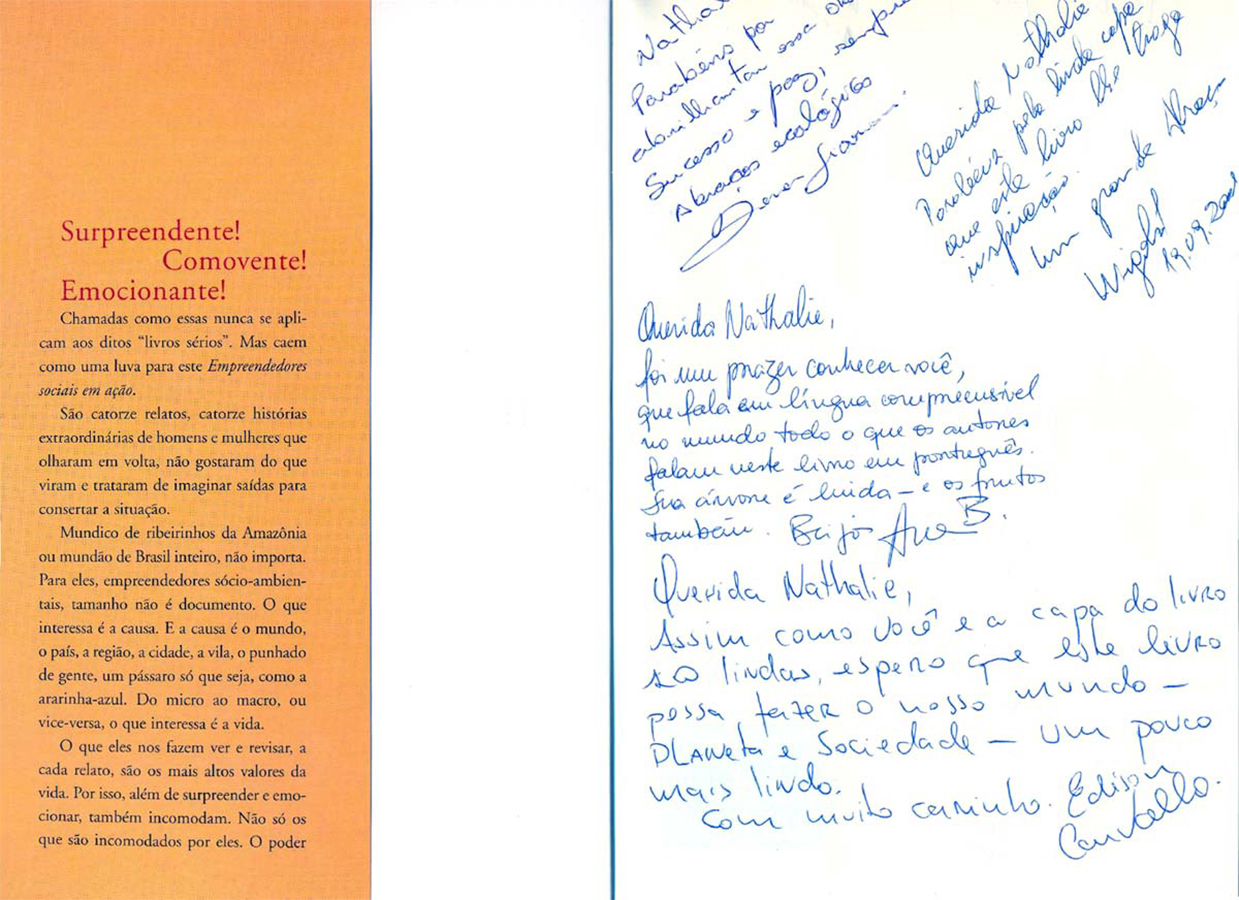 Surpreendente!
Comovente!
Emocionante!
Chamadas como essas nunca se apli-
cam aos ditos “livros sérios”. Mas caem
como uma luva para este Empreendedores
sociais em ação.
São catorze relatos, catorze histórias
extraordinárias de homens e mulheres que
olharam em volta, não gostaram do que
viram e trataram de imaginar saídas para
consertar a situação.
Mundico de ribeirinhos da Amazônia
ou mundão de Brasil inteiro, não importa.
Para eles, empreendedores sócio-ambien-
tais, tamanho não é documento. O que
interessa é a causa. E a causa é o mundo,
o país, a região, a cidade, a vila, o punhado
de gente, um pássaro só que seja, como a
ararinha-azul. Do micro ao macro, ou
vice-versa, o que interessa é a vida.
O que eles nos fazem ver e revisar, a
cada relato, são os mais altos valores da
vida. Por isso, além de surpreender e emo-
cionar, também incomodam. Não só os
que são incomodados por eles. O poder
Parabéns por
abrilhantar essa
Sucesso e paz, sempre
Abraços ecológicos
Querida Nathalie
Parabéns pela linda capa
que este livro lhe traga
inspiração.
Um grande
19.09.2001
Querida Nathalie,
foi um prazer conhecer você,
que fala em língua compreensível
no mundo todo o que os autores
falam neste livro em português.
Sua árvore é linda – e os frutos
também. Beijos Ana B.
Querida Nathalie,
Assim como você e a capa do livro
são lindas, espero que este livro
possa, fazer o nosso mundo –
Planeta e Sociedade – um pouco
mais lindo.
Com muito carinho. Edison
Carvalho.